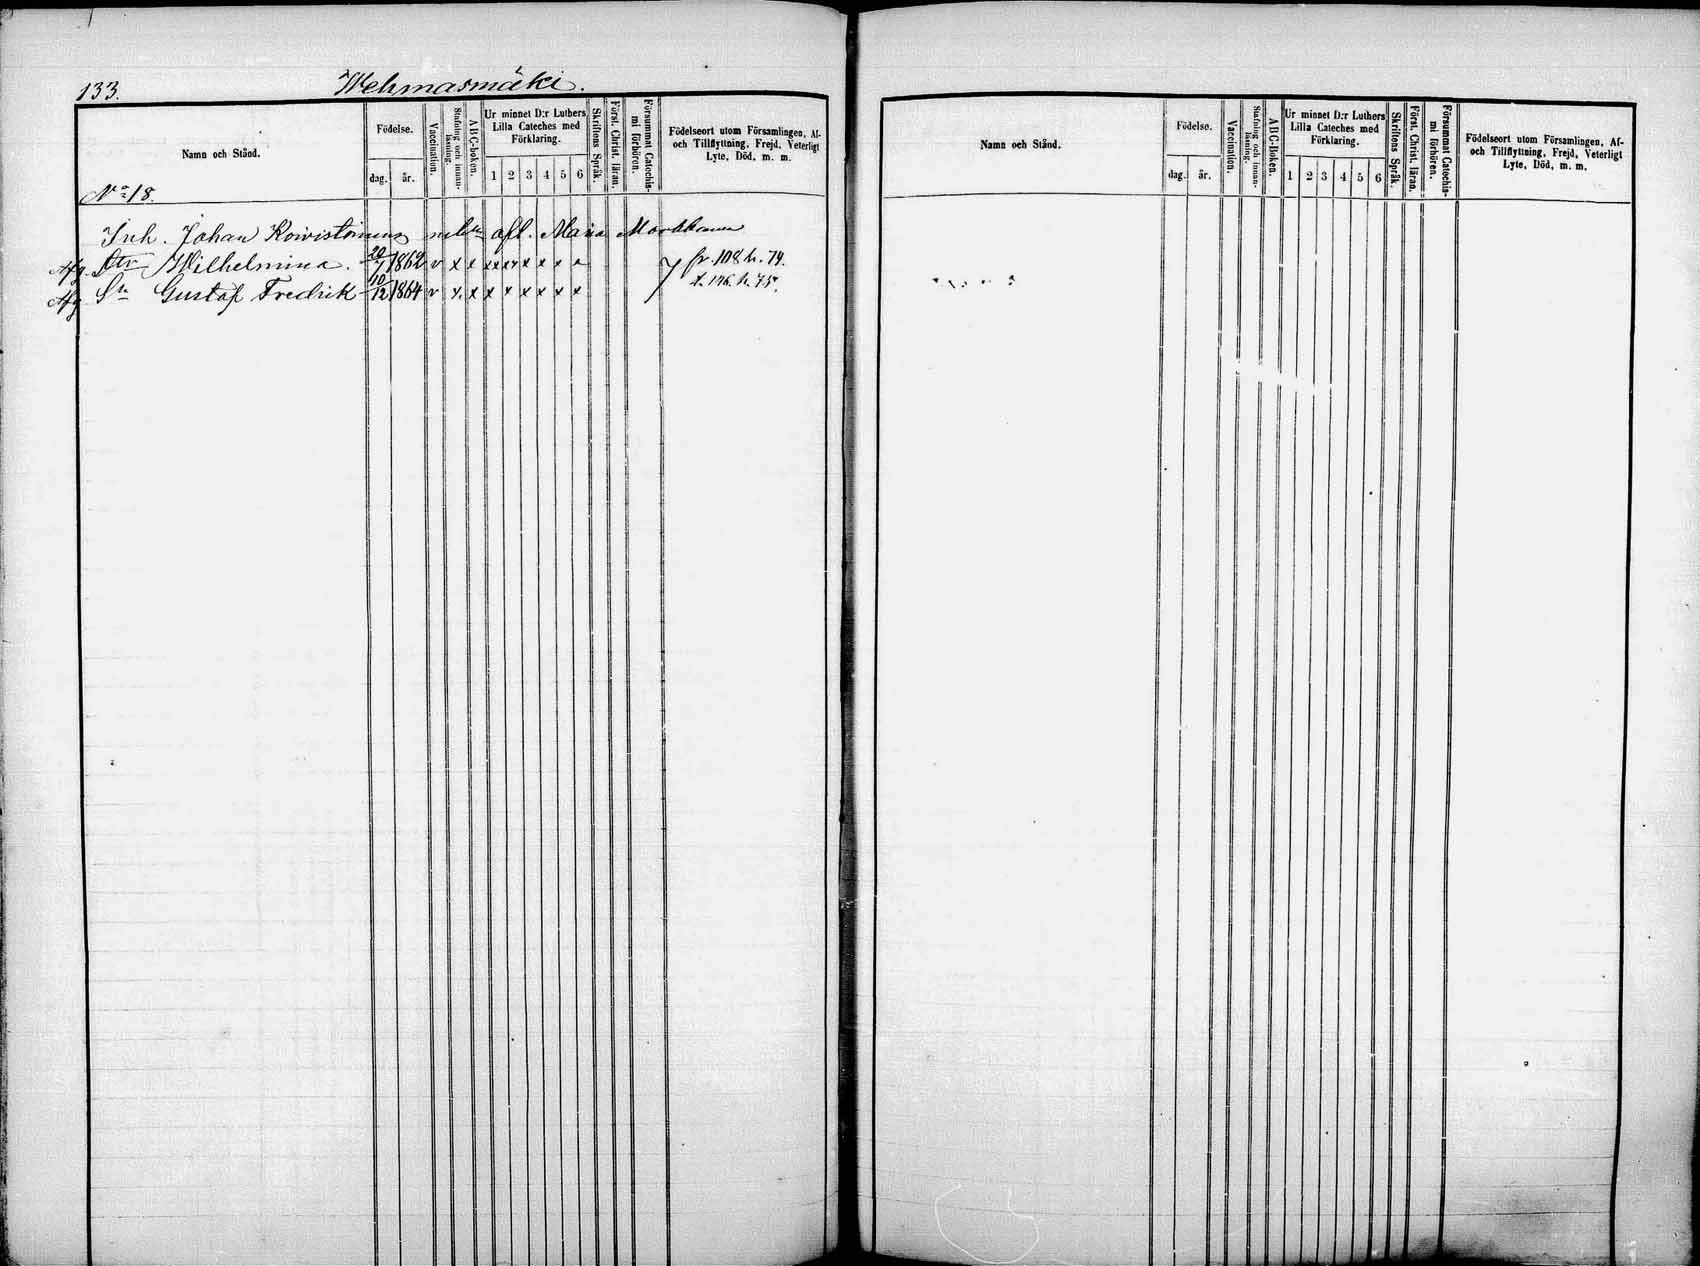 133. Wehmasmäki.
Namn och Stånd.
Födelse.
dag. år.
Vaccination.
Stafning och innan-läsning.
ABC-boken.
Ur minnet D:r Luthers
Lilla Cateches med
Förklaring.
1 2 3 4 5 6
Skriftens Språk.
Först. Christ. läran.
Försummat Catechis-
mi förhören.
Födelseort utom Församlingen, Af-
och Tillflyttning, Frejd, Veterligt
Lyte, Död, m. m.
No 18.
Inh. Johan Koivistoinens afl. Maria
Afg. Dtr Wilhelmina. 20/7 1862 v x x x x x x x x x fr. 108 h. 74.
Afg Sn Gustaf Fredrik 10/12 1864 v x x x x x x x x t. 146. h. 75.
Namn och Stånd.
Födelse.
dag. år.
Vaccination.
Stafning och innan-
läsning.
ABC-Boken.
Ur minnet D:r Luthers
Lilla Cateches med
Förklaring.
1 2 3 4 5 6
Skriftens Språk.
Först. Christ. läran.
Försummat Catechis-
mi förhören.
Födelseort utom Församlingen, Af-
och Tillflyttning, Frejd, Veterligt
Lyte, Död, m. m.